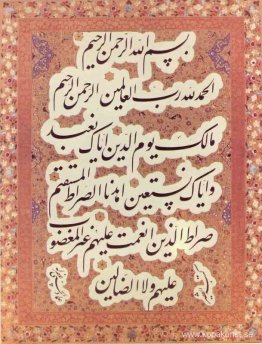 بسم الله الرحمن الرحیم
الحمد لله رب العالمین الرحمن الرحیم
مالک یوم الدین ایاک نعبد
وایاک نستعین اهدنا الصراط المستقیم
صراط الذین انعمت علیهم غیر المغضوب
علیهم ولا الضالین
www.kopakonst.se